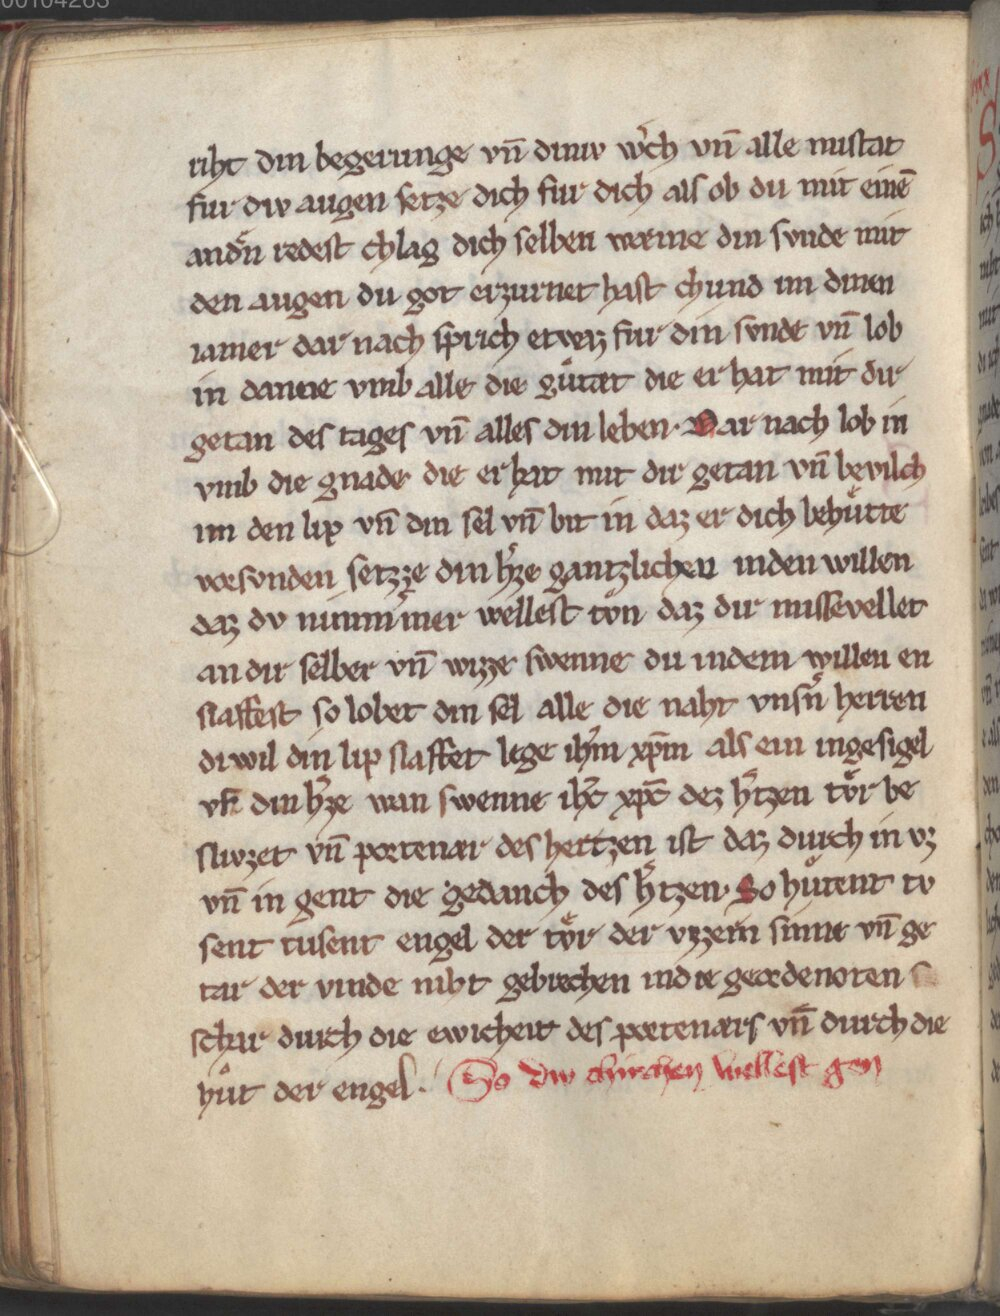 00104263
riht din begerunge vn̄ diniv w̾ch vn̄ alle mistat
fur div augen setze dich fur dich als ob du mit einē
andn̾ redest chlag dich selben weine din svnde mit
den augen du got erzurnet hast chund im dinen
iamer dar nach sprich etwaz fur din svnde vn̄ lob
in danne vmb alle die gůtæt die er hat mit dir
getan des tages vn̄ alles din leben. Dar nach lob in
vmb die gnade die er hat mit dir getan vn̄ bevilch
im den lip vn̄ din sel vn̄ bit in daz er dich behůtte
vor svnden setzze din h̾ze gantzlichen in den willen
daz dv nimmmer wellest tůn daz dir missevellet
an dir selber vn̄ wizze swenne du in dem willen en
slaffest so lobet din sel alle die naht vnsn̾ herren
di wil din lip slaffet lege ih̄m xp̄m als ein ingesigel
vf din h̾ze wan swenne ih̄c xp̄c dez h̾tzen tůr be
slivzet vn̄ portenær des hertzen ist daz durch in vz
vn̄ in gent die gedanch des h̾tzen. So hůtent tv
sent tusent engel der tůr der vzzern sinne vn̄ ge
tar der vinde niht gebrechen in die geordenoten
schar durch die ewicheit des portenærs vn̄ durch die
hůt der engel. So dw chirchen wellest gen